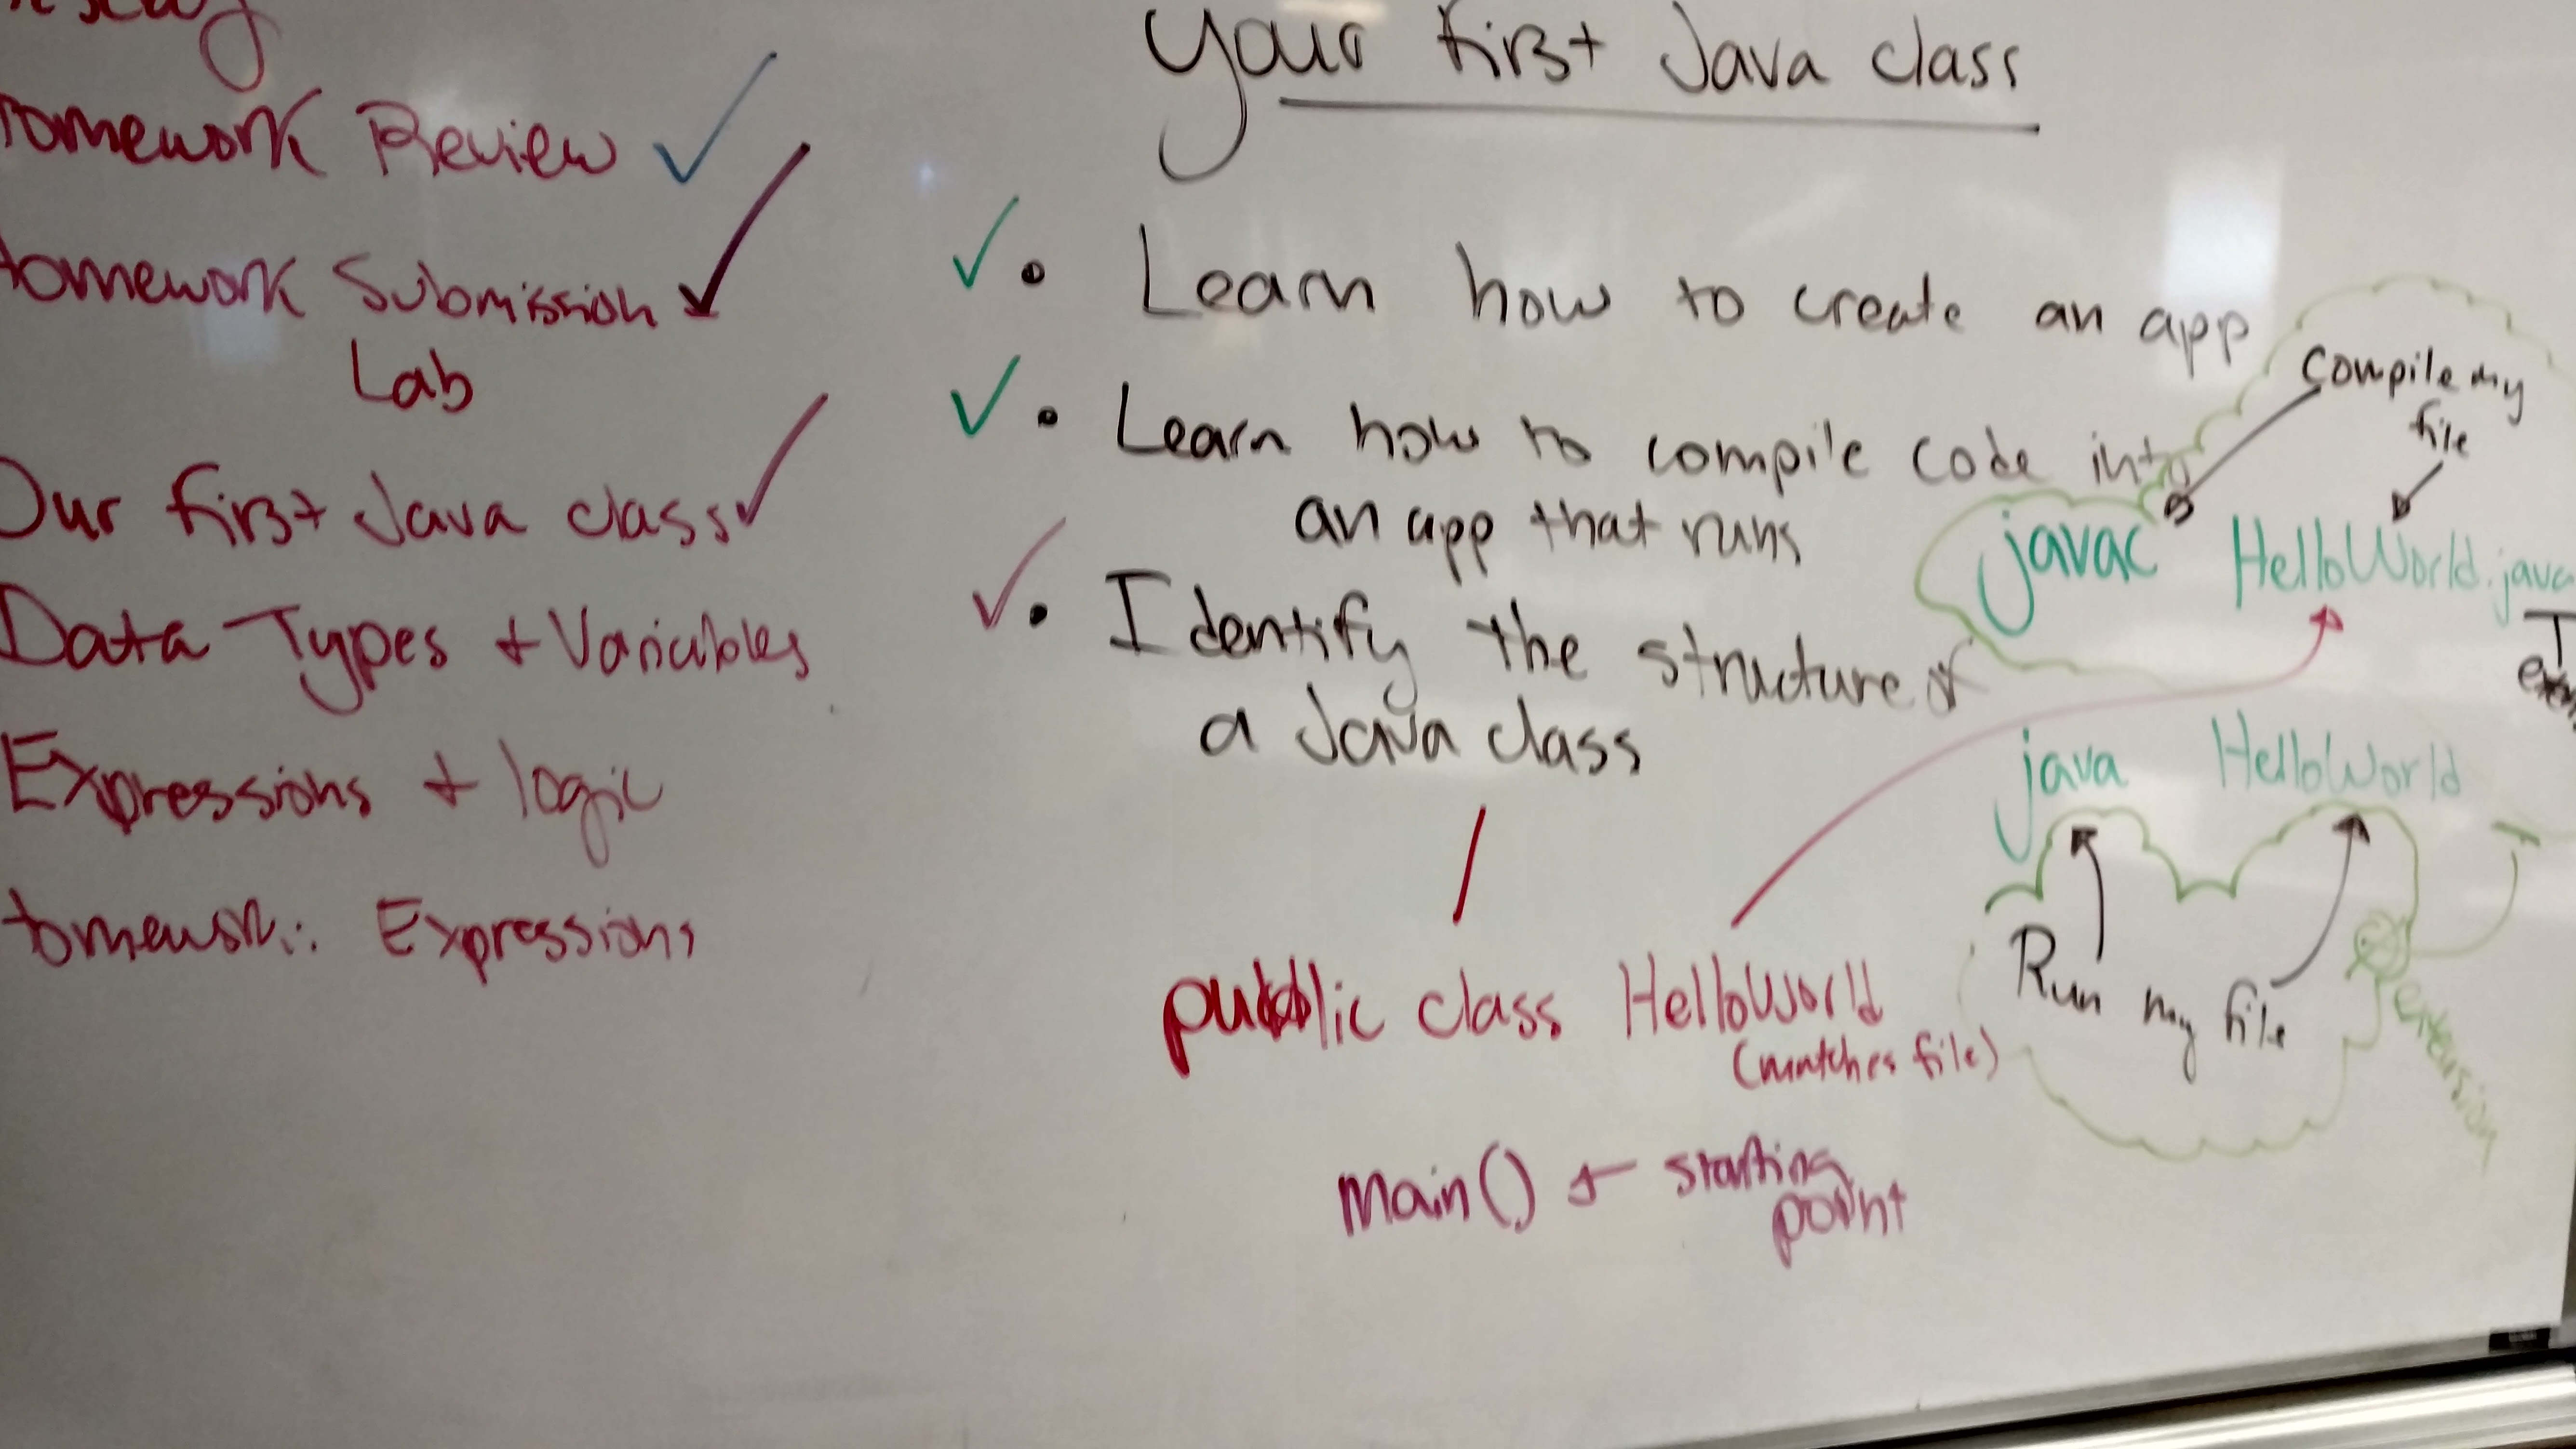 Homework Review ✓
Homework Submission ✓
Lab
Our first Java class ✓
Data Types + Variables
Expressions + logic
Homework: Expressions
Your first Java class
✓ • Learn how to create an app
✓ • Learn how to compile code into
an app that runs
✓ • Identify the structure of
a Java class
public class HelloWorld
(matches file)
main() ← starting
point
compile my
file
javac HelloWorld.java
java HelloWorld
Run my file
extension